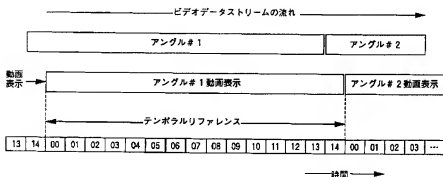 ビデオデータストリームの流れ
アングル#1 アングル#2
動画表示 アングル#1動画表示 アングル#2動画表示
テンポラルリファレンス
13 14 00 01 02 03 04 05 06 07 08 09 10 11 12 13 14 00 01 02 03 …
時間